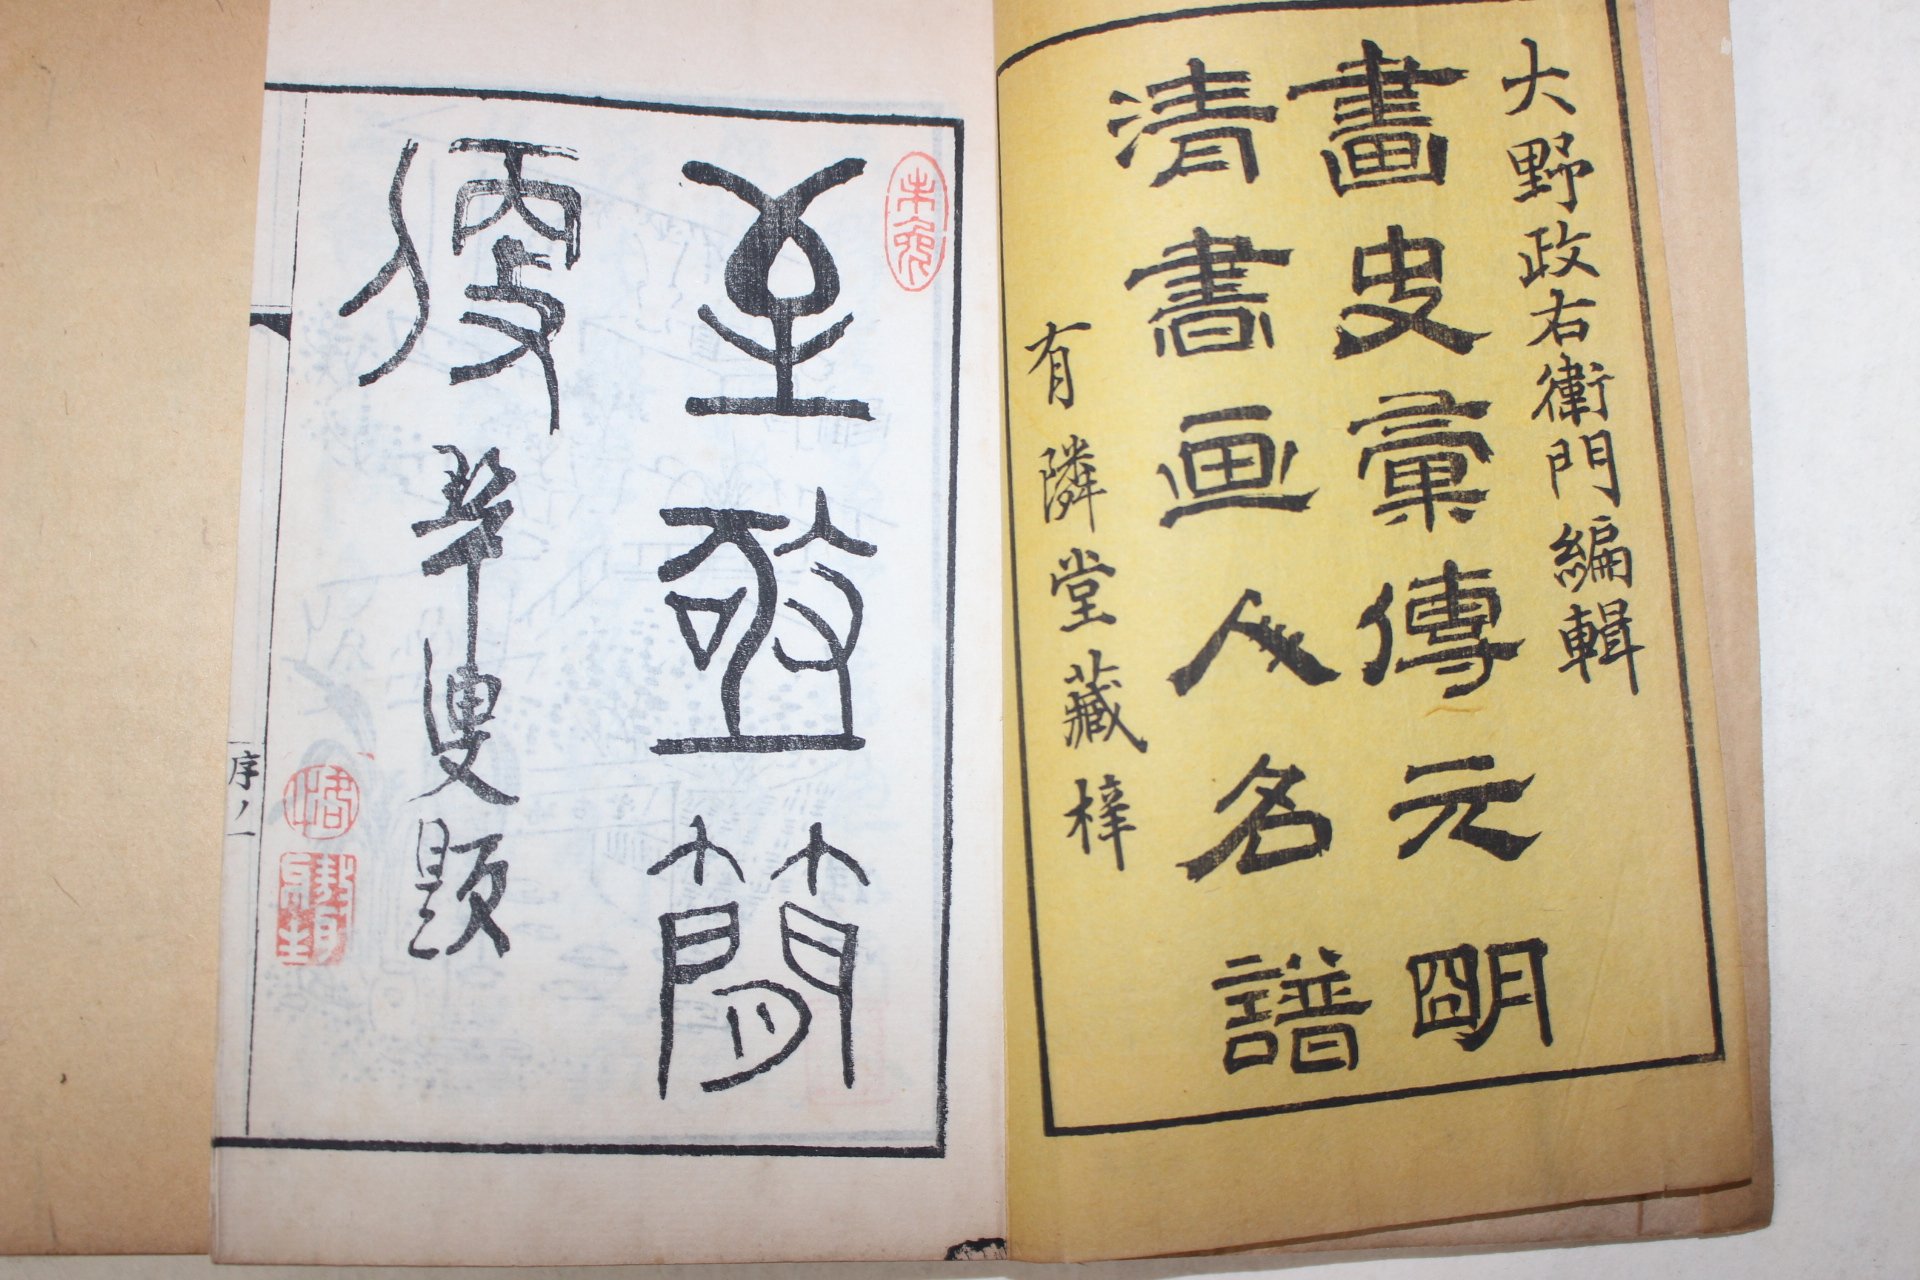 大野政右衛門編輯
畫史彙傳元明
清書画人名譜
有隣堂藏梓
至敬簡
便
翠叟題
序ノ一